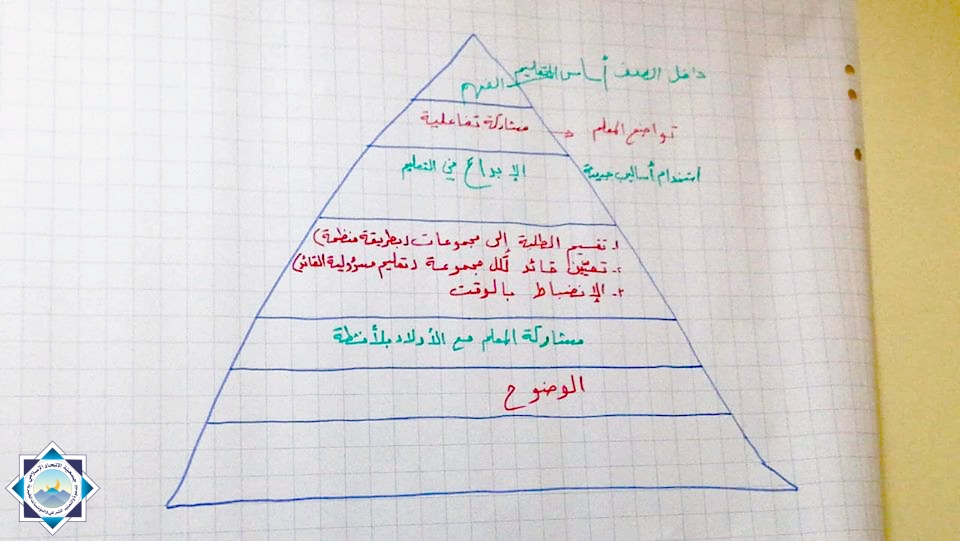 داخل الصف أساس التعليم الفهم
مشاركة تفاعلية → تواضع المعلم
الإبداع في التعليم استخدام أساليب جديدة
1. تقسيم الطلبة إلى مجموعات (بطريقة منظمة)
2. تعيّن قائد لكل مجموعة (تعليم مسؤولية القائد)
3. الإنضباط بالوقت
مشاركة المعلم مع الأولاد بلأنشطة
الوضوح